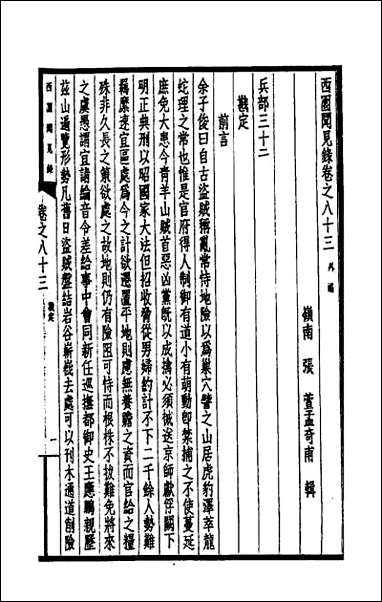 西園聞見錄卷之八十三 外編
嶺南 張 萱孟奇甫 輯
兵部三十二
戡定
前言
余子俊曰自古盜賊稱亂常恃地險以爲巢穴譬之山居虎豹澤萃龍
蛇理之常也惟是官府得人制御有道小有萌動卽禁捕之不使蔓延
庶免大患今青羊山賊首惡凶黨旣以成擒必須械送京師獻俘闕下
明正典刑以昭國家大法但招收脅從男婦約計不下二千餘人勢難
羈縻速宜區處爲今之計欲遷置平地則慮無養贍之資而官給之糧
殊非久長之策欲處之故地則仍有險阻可恃而根株不拔難免將來
之虞愚謂宜請綸音令差給事中會同新任巡撫都御史王應鵬親歷
茲山遍覽形勢凡舊日盜賊盤詰岩谷嶄巉去處可以刊木通道創險
西園聞見錄 卷之八十三 戡定 一